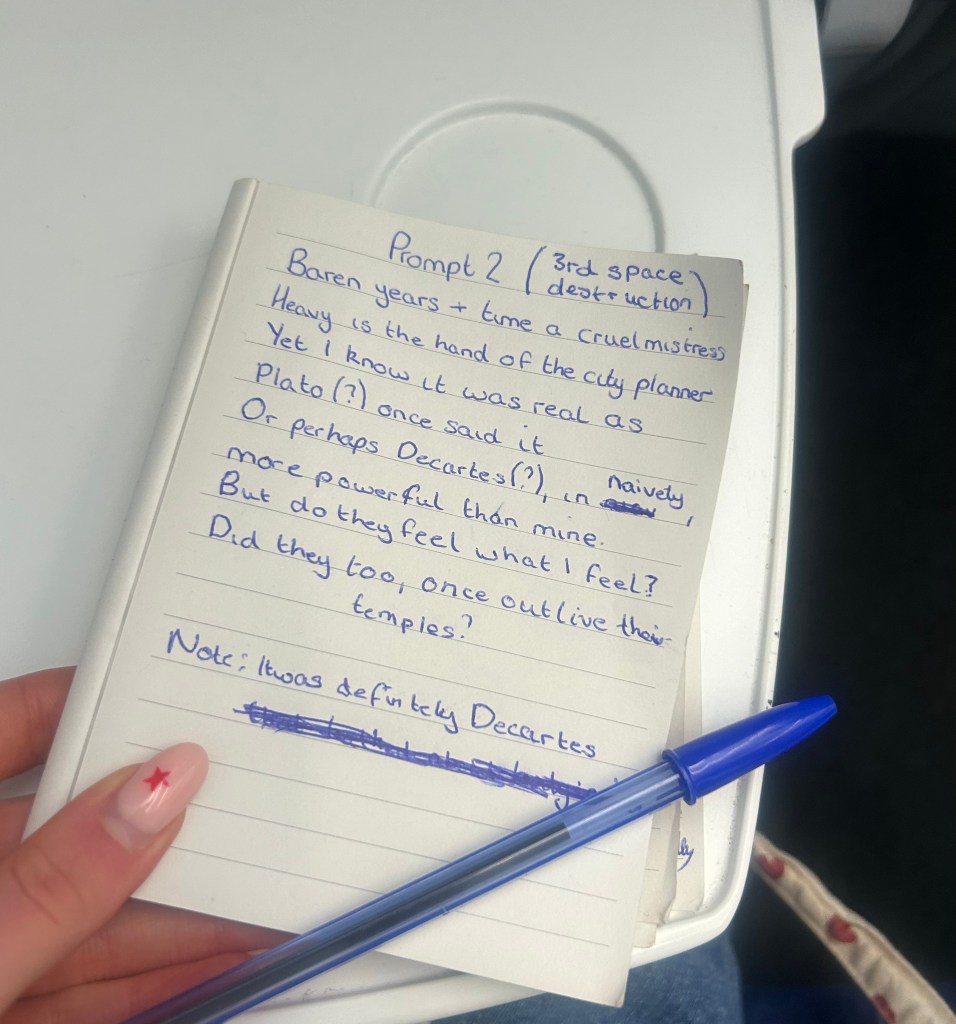 Prompt 2 (3rd space
destruction)
Baren years + time a cruel mistress
Heavy is the hand of the city planner
Yet I know it was real as
Plato (?) once said it
Or perhaps Decartes (?), in naively,
more powerful than mine.
But do they feel what I feel?
Did they too, once outlive their
temples?
Note: It was definitely Decartes